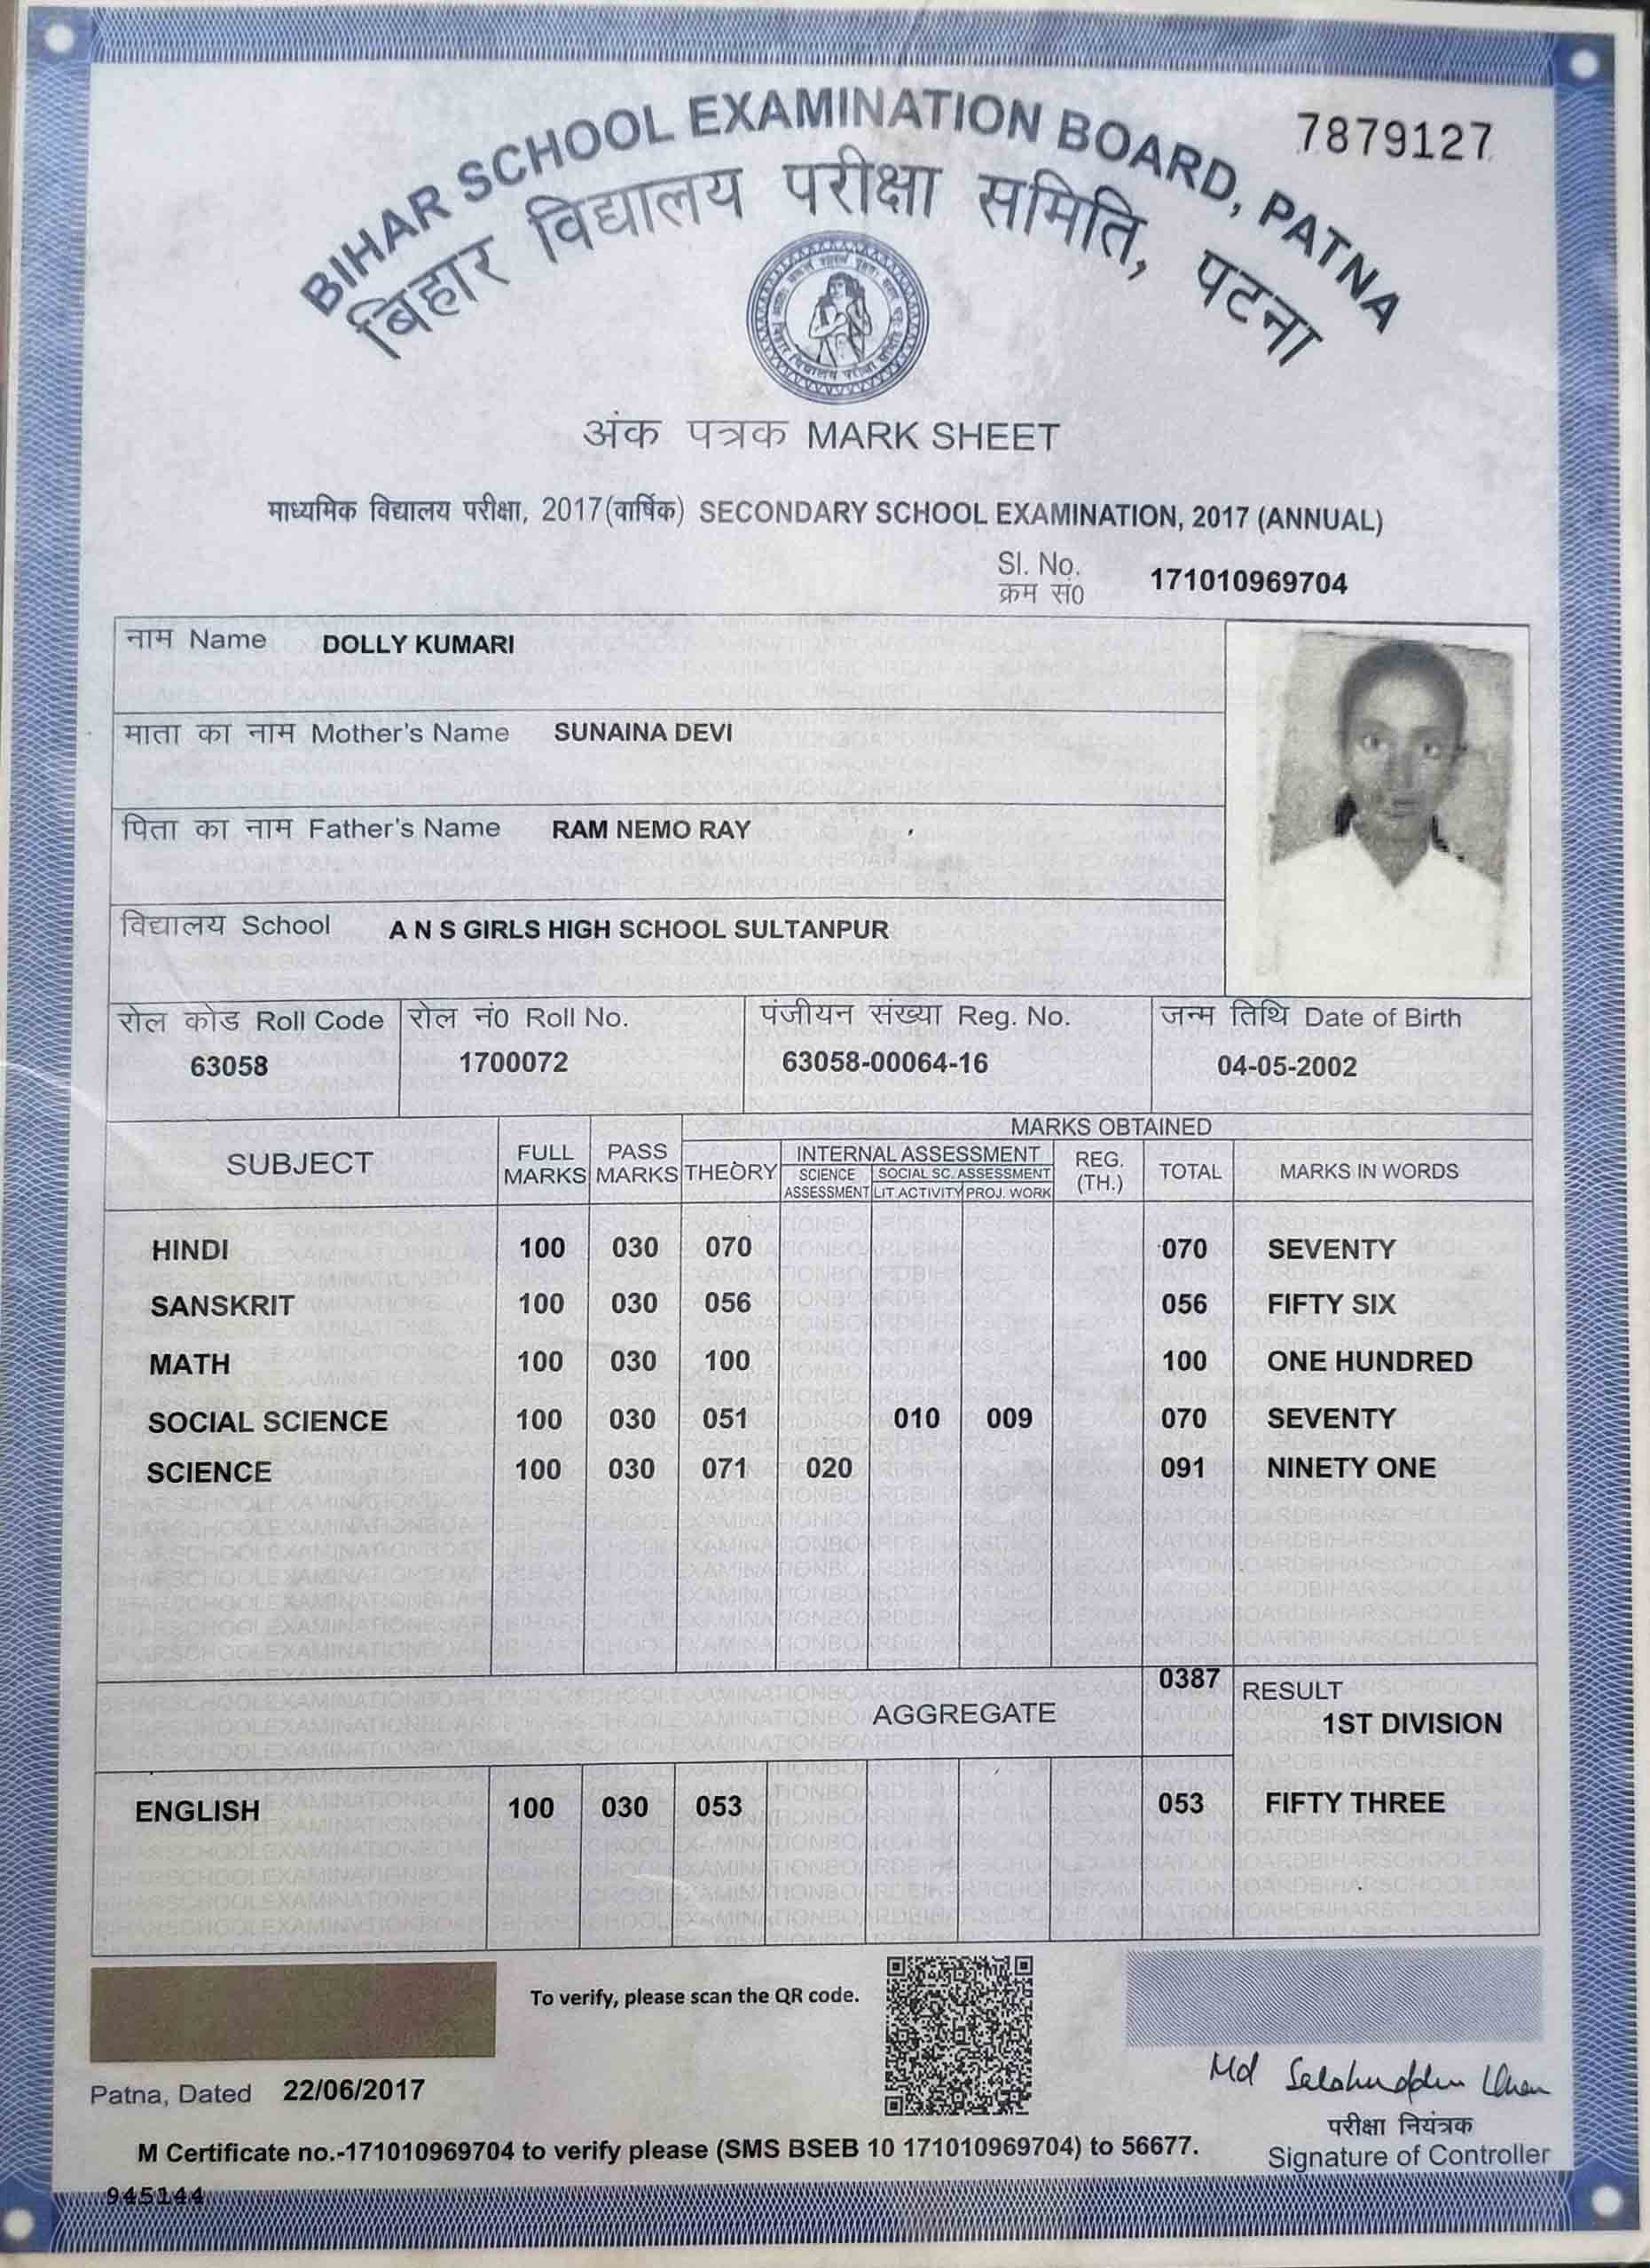 7879127
BIHAR SCHOOL EXAMINATION BOARD, PATNA
बिहार विद्यालय परीक्षा समिति, पटना
अंक पत्रक MARK SHEET
माध्यमिक विद्यालय परीक्षा, 2017(वार्षिक) SECONDARY SCHOOL EXAMINATION, 2017 (ANNUAL)
Sl. No.
क्रम सं0 171010969704
नाम Name DOLLY KUMARI
माता का नाम Mother's Name SUNAINA DEVI
पिता का नाम Father's Name RAM NEMO RAY
विद्यालय School A N S GIRLS HIGH SCHOOL SULTANPUR
रोल कोड Roll Code रोल नं0 Roll No. पंजीयन संख्या Reg. No. जन्म तिथि Date of Birth
63058 1700072 63058-00064-16 04-05-2002
MARKS OBTAINED
SUBJECT FULL MARKS PASS MARKS THEORY INTERNAL ASSESSMENT REG. (TH.) TOTAL MARKS IN WORDS
SCIENCE ASSESSMENT SOCIAL SC. ASSESSMENT
LIT.ACTIVITY PROJ. WORK
HINDI 100 030 070 070 SEVENTY
SANSKRIT 100 030 056 056 FIFTY SIX
MATH 100 030 100 100 ONE HUNDRED
SOCIAL SCIENCE 100 030 051 010 009 070 SEVENTY
SCIENCE 100 030 071 020 091 NINETY ONE
AGGREGATE 0387 RESULT
1ST DIVISION
ENGLISH 100 030 053 053 FIFTY THREE
To verify, please scan the QR code.
Patna, Dated 22/06/2017
Md Salahuddin Khan
परीक्षा नियंत्रक
Signature of Controller
M Certificate no.-171010969704 to verify please (SMS BSEB 10 171010969704) to 56677.
945144